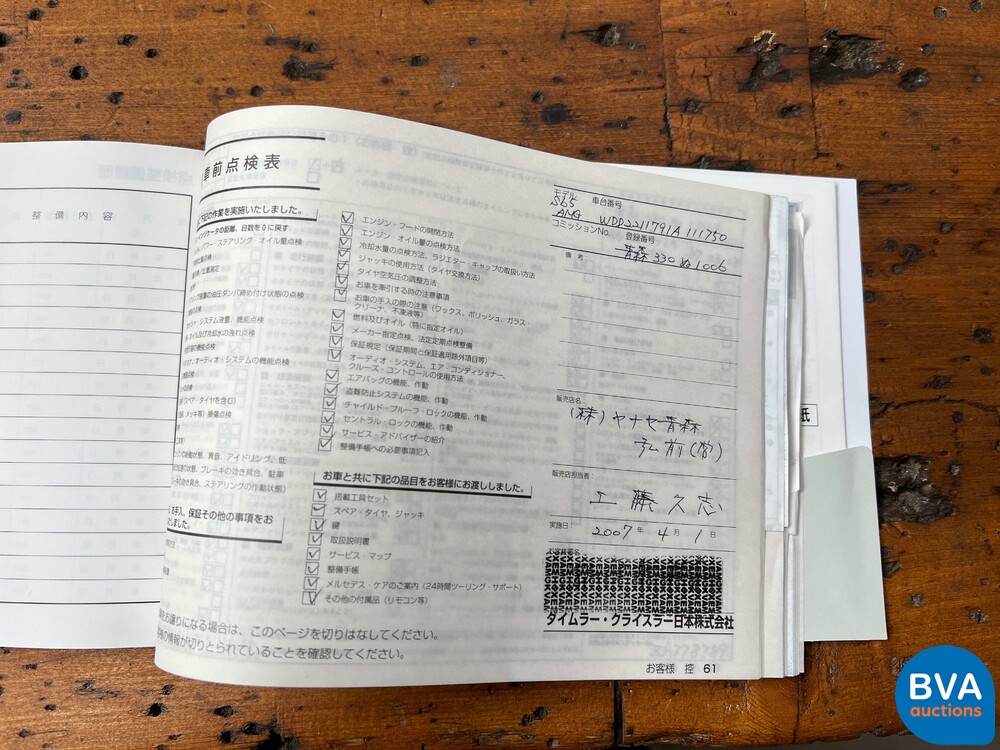 整備内容
車前点検表
下記の作業を実施いたしました。
インジケータの距離、日数を0に戻す
パワー・ステアリング・オイル量点検
エンジン・フードの開閉方法
エンジン オイル量の点検方法
冷却水量の点検方法、ラジエター・キャップの取扱い方法
ジャッキの使用方法（タイヤ交換方法）
タイヤ空気圧の調整方法
お車を牽引する時の注意事項
お車の手入の際の注意（ワックス、ポリッシュ、ガラス・
クリーナ、不凍液等）
燃料及びオイル（特に指定オイル）
メーカー指定点検、法定定期点検整備
保証規定（保証期間と保証適用除外項目等）
オーディオ・システム、エア・コンディショナー、
クルーズ・コントロールの使用方法
エアバッグの機能、作動
盗難防止システムの機能、作動
チャイルド・プルーフ・ロックの機能、作動
セントラル・ロックの機能、作動
サービス・アドバイザーの紹介
整備手帳への必要事項記入
お車と共に下記の品目をお客様にお渡ししました。
搭載工具セット
スペア・タイヤ、ジャッキ
鍵
取扱説明書
サービス・マップ
整備手帳
メルセデス・ケアのご案内（24時間ツーリング・サポート）
その他の付属品（リモコン等）
お譲りになる場合は、このページを切りはなしてください。
の情報が切りとられていることを確認してください。
モデル 車台番号
S65
AMG WDD2211791A111750
コミッションNo. 登録番号
青森 330 ぬ 1006
備考
販売店名:
(株)ヤナセ青森
弘前(営)
販売店担当者:
工藤久志
実施日: 2007年 4月 1日
タイムラー・クライスラー日本株式会社
お客様 控 61
紙
BVA
auctions